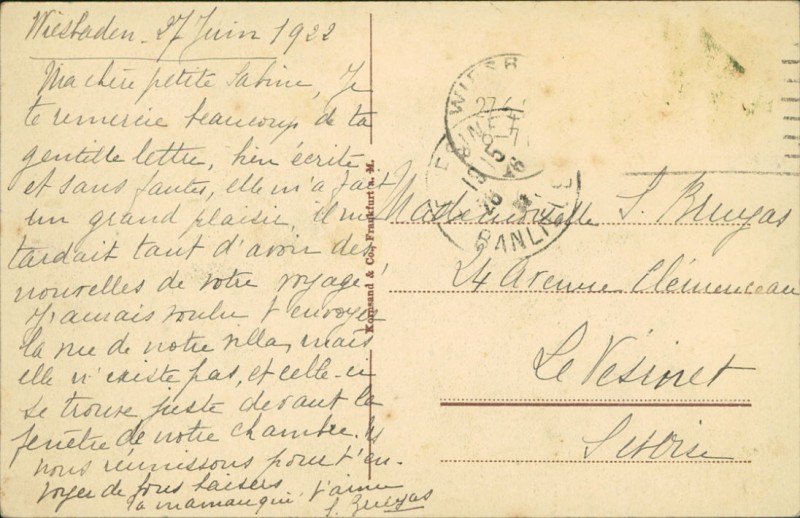 Wiesbaden - 27 Juin 1922
Ma chère petite Sabine, Je
te remercie beaucoup de ta
gentille lettre, bien écrite
et sans fautes, elle m'a fait
un grand plaisir, il me
tardait tant d'avoir des
nouvelles de votre voyage!
J'aurais voulu t'envoyer
la vue de notre villa, mais
elle n'existe pas, et celle-ci
se trouve juste devant la
fenêtre de notre chambre.
nous réunissons pour t'en-
voyer de bons baisers
ta maman qui t'aime
Kornsand & Co., Frankfurt a. M.
WIESB
27
BANLIEUE
Mademoiselle S. Bruyas
24 Avenue Clémenceau
Le Vésinet
S et Oise